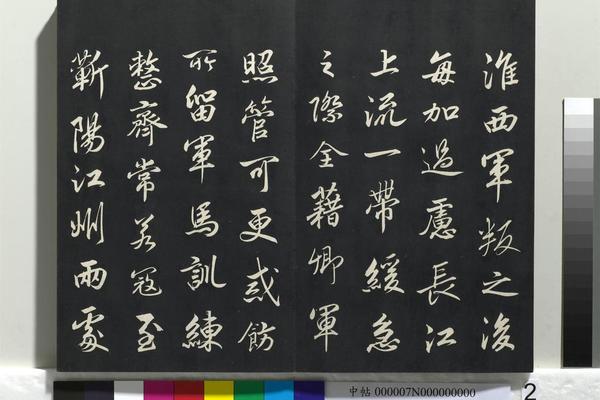 淮西軍叛之後
每加過慮長江
上流一帶緩急
之際全藉卿軍
照管可更戒飭
所留軍馬訓練
整齊常若寇至
蘄陽江州兩處
中帖 000007N000000000
2